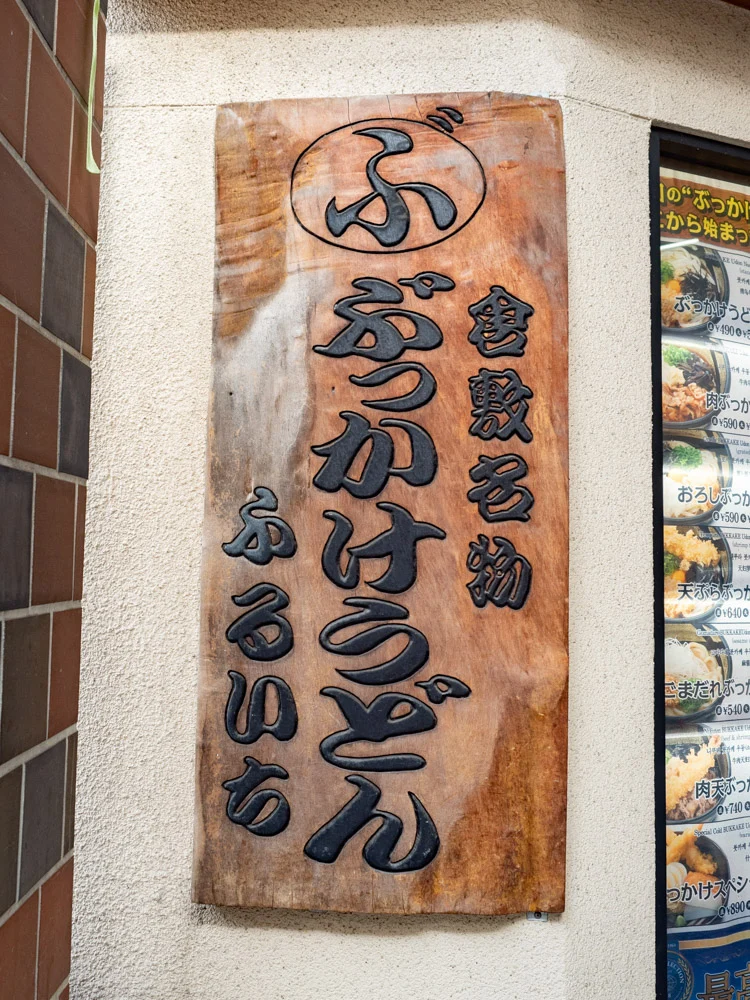 ぶ
倉敷名物
ぶっかけうどん
ふるいち
の“ぶっか
から始まっ
ぶっかけうど
¥490
肉ぶっか
¥590
おろしぶっか
¥590
天ぷらぶっか
¥640
ごまだれぶっか
¥540
肉天ぶっか
¥740
Special Cold BUKKAKE
っかけスペシ
¥890